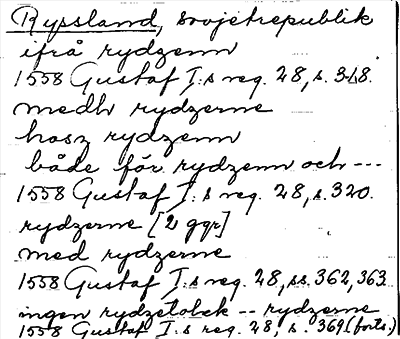 Ryssland, sovjetrepublik
ifrå rydzenn
1558 Gustaf I:s reg. 28, s. 318.
medh rydzerne
hosz rydzenn
både för rydzenn och ---
1558 Gustaf I:s reg. 28, s. 320.
rydzerne [2 ggr]
med rydzerne
1558 Gustaf I:s reg. 28, ss. 362, 363
ingen rydzetolck -- rydzerne
1558 Gustaf I:s reg. 28, s. 369 (forts.)